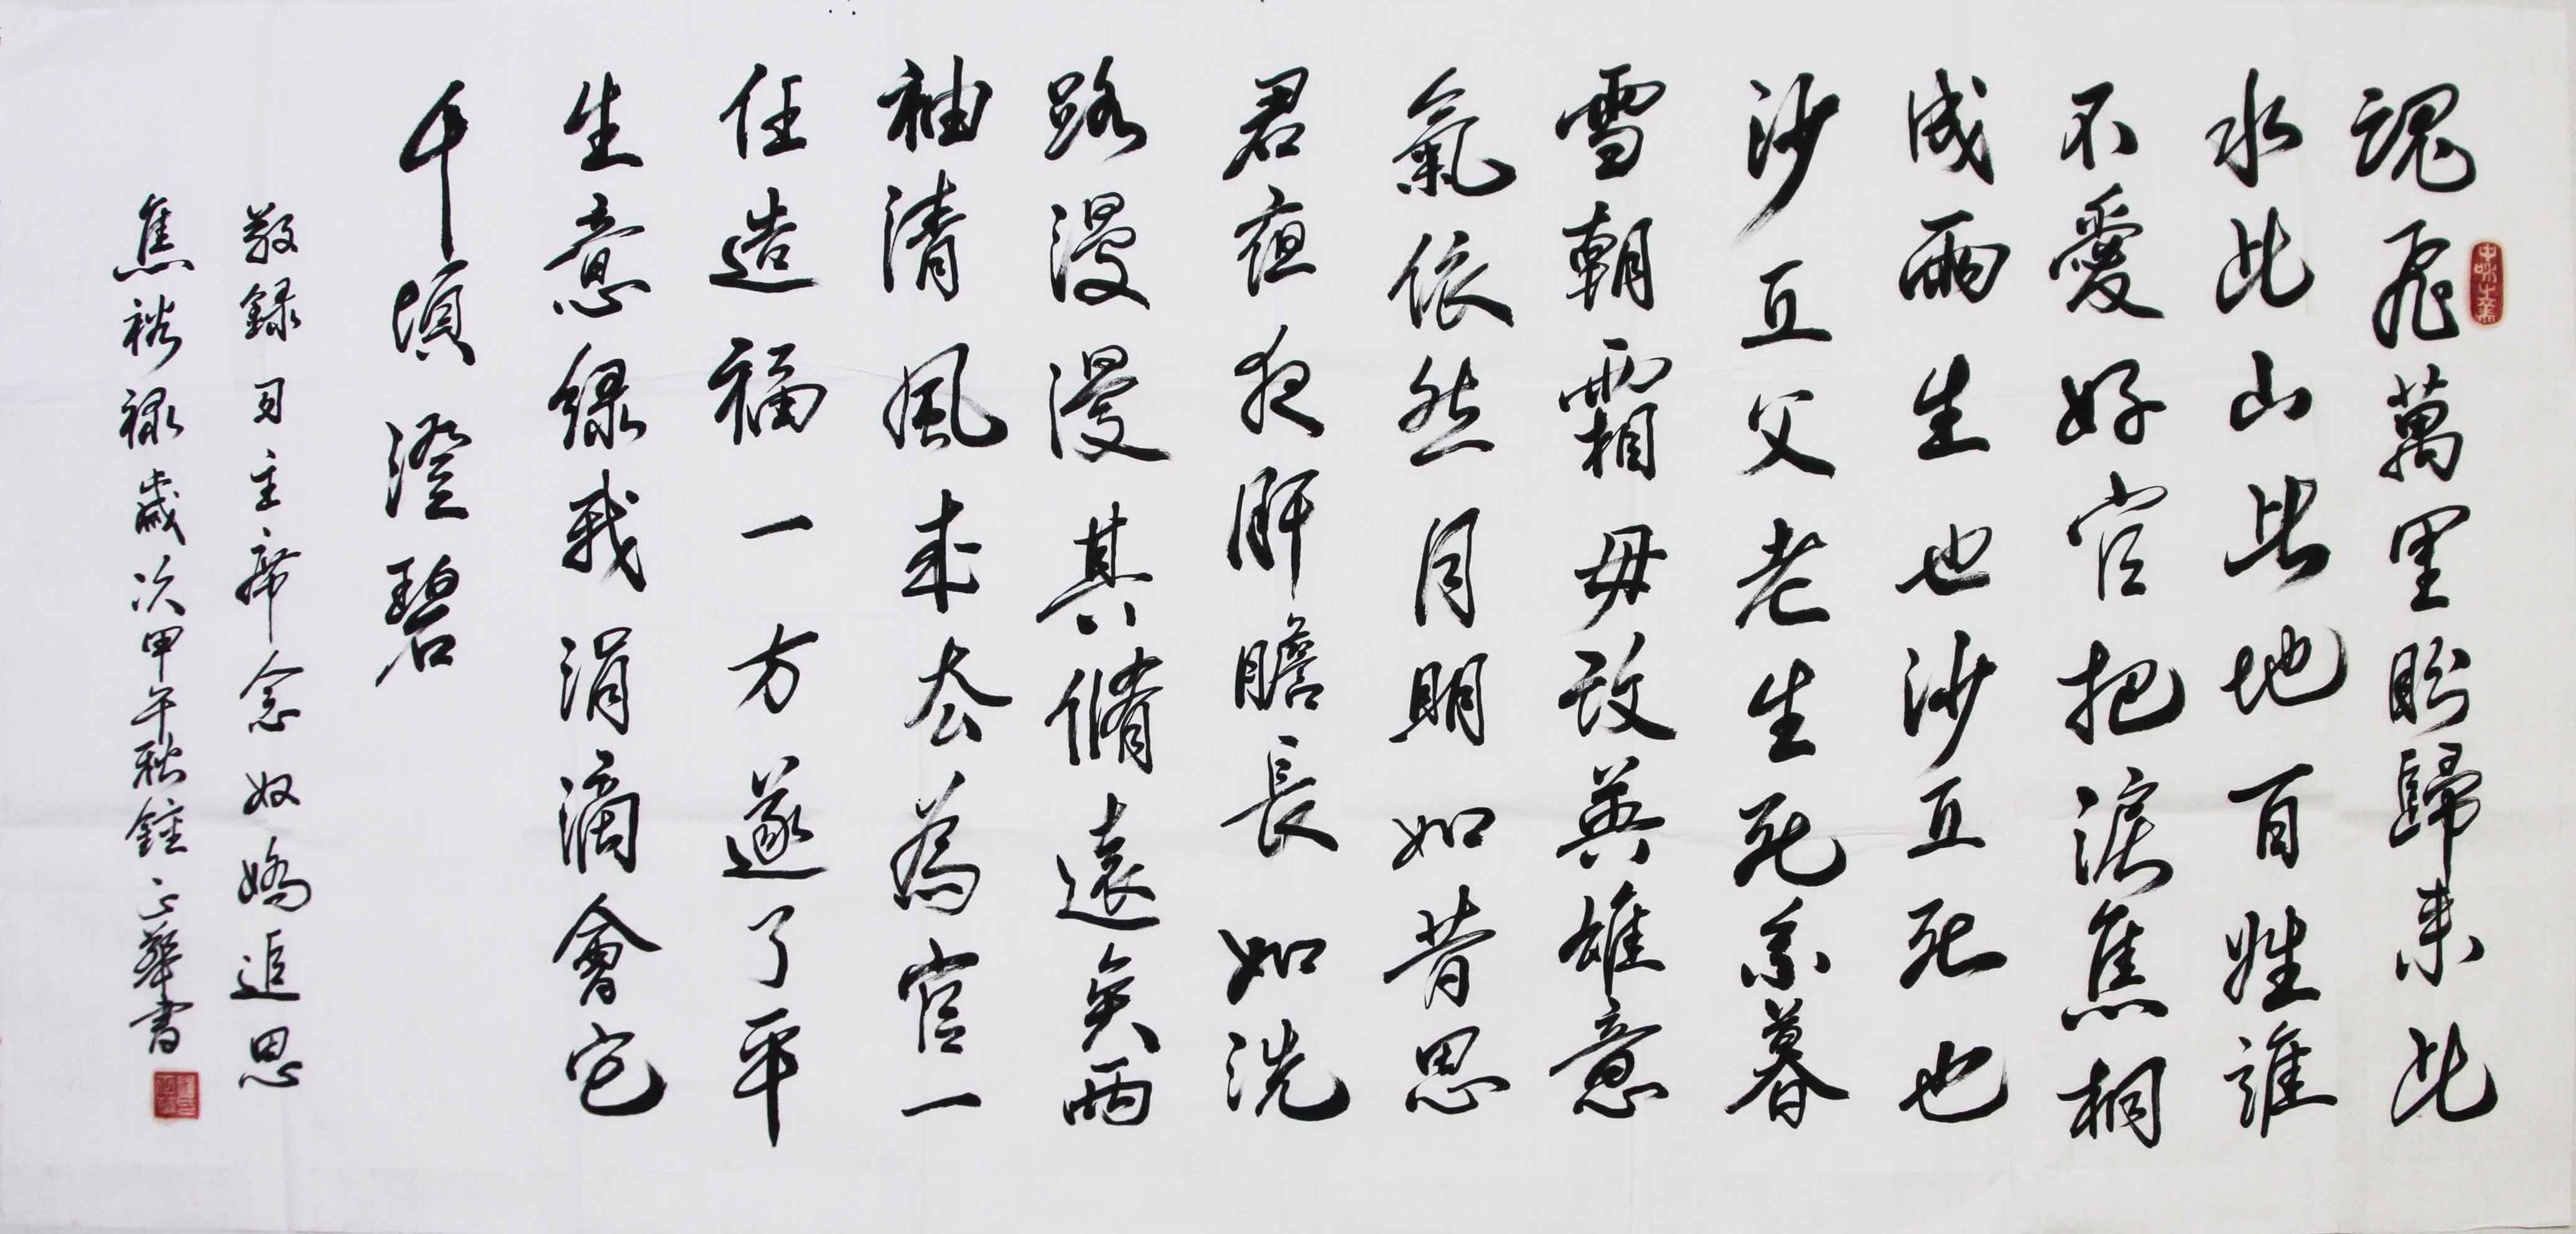 魂飛萬里盼歸来此
水此山此地百姓誰
不愛好官把淚焦桐
成雨生也沙丘死也
沙丘父老生死系暮
雪朝霜毋改英雄意
氣依然月明如昔思
君夜夜肝膽長如洗
路漫漫其脩遠矣兩
袖清風来去為官一
任造福一方遂了平
生意緑我涓滴會它
千頃澄碧
敬録習主席念奴嬌追思
焦裕禄歲次甲午秋鍾正華書